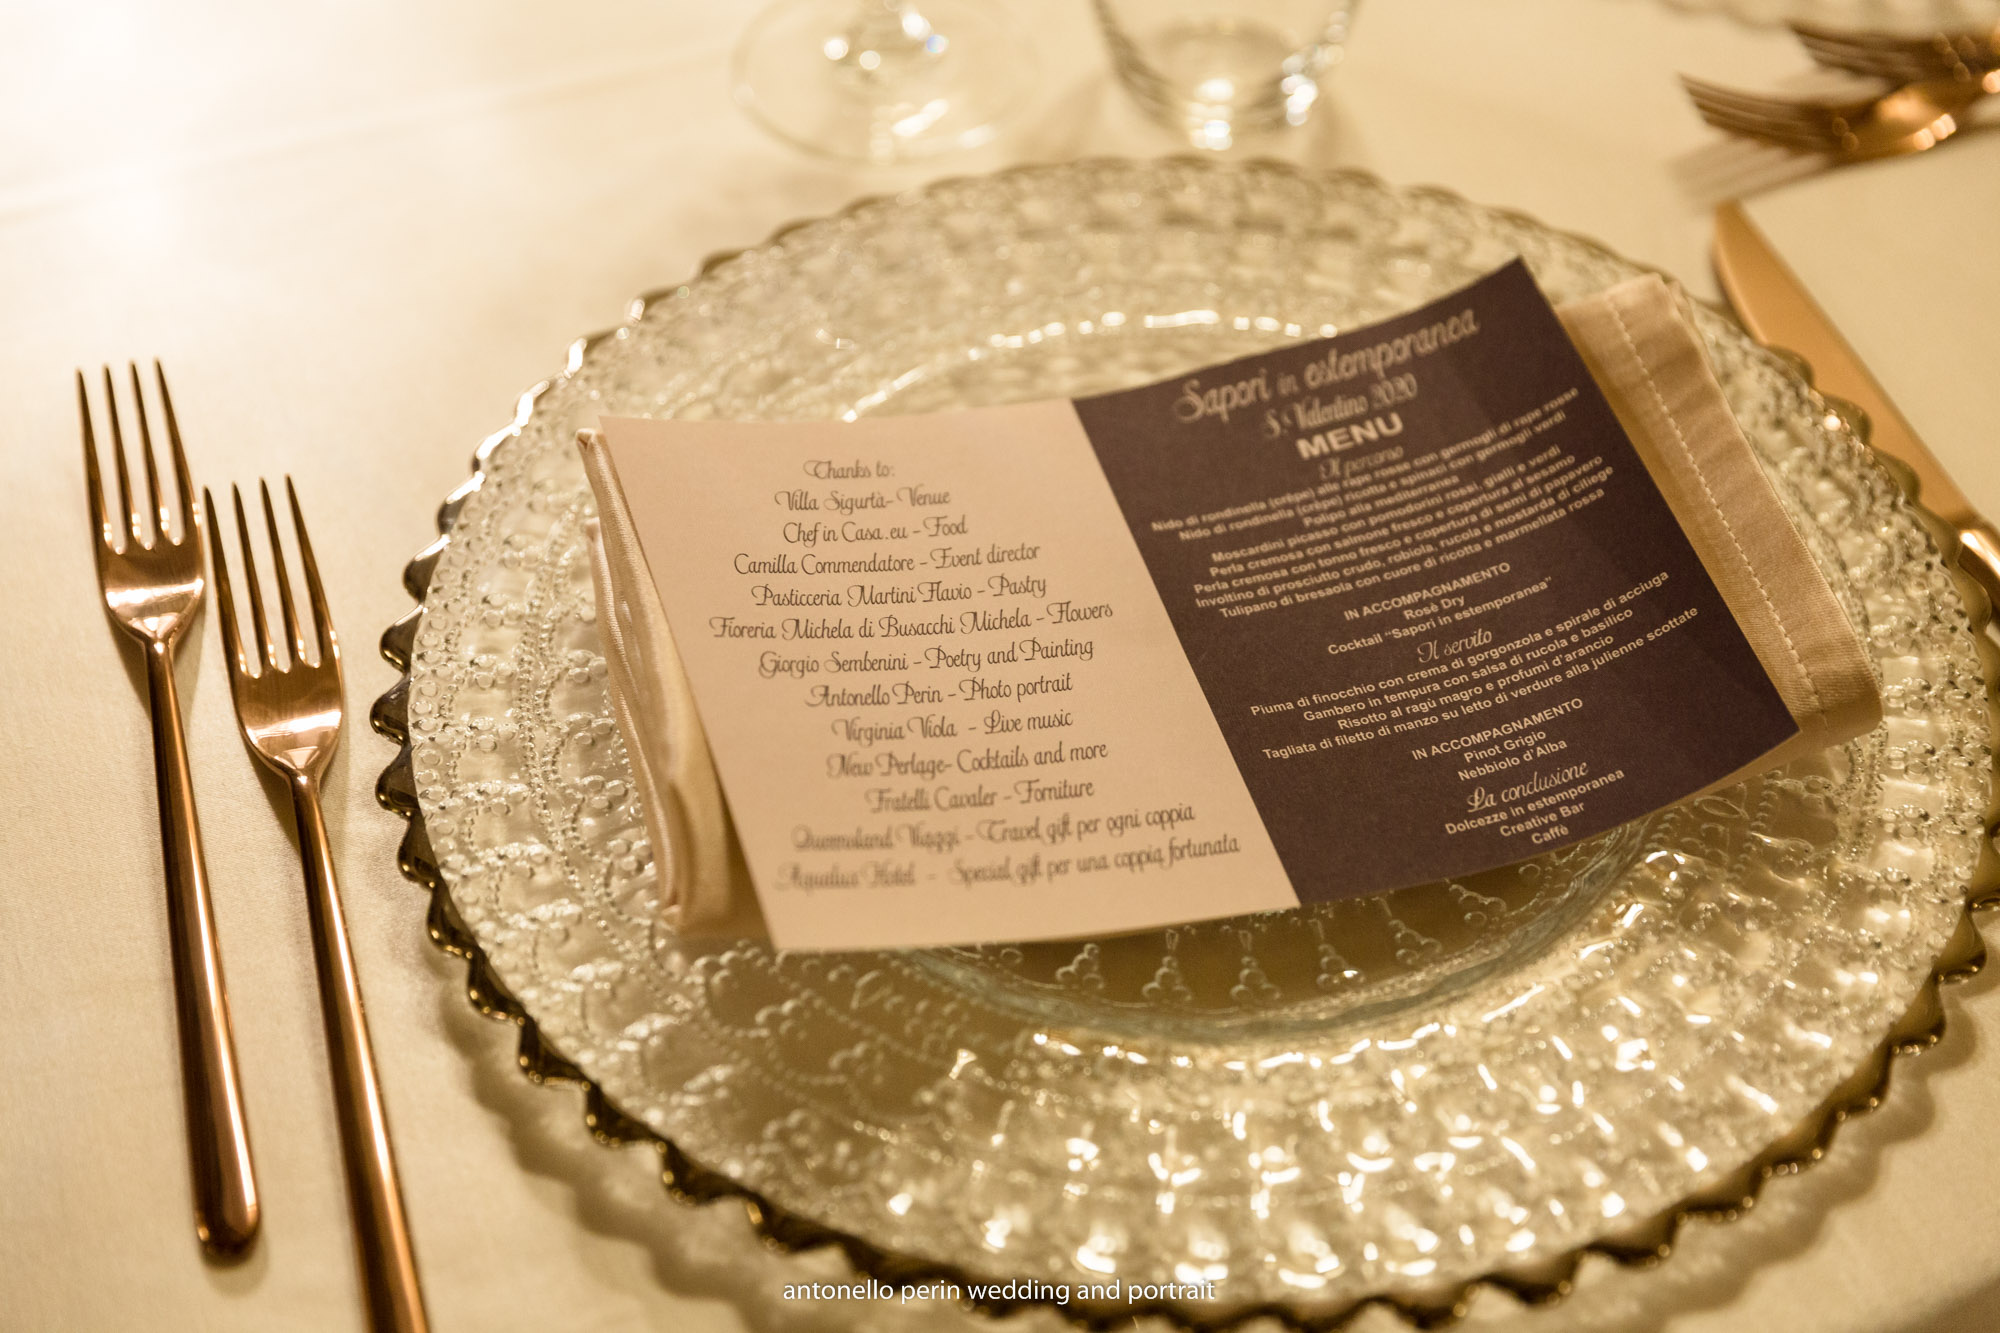 Thanks to:
Villa Sigurtà- Venue
Chef in Casa.eu - Food
Camilla Commendatore - Event director
Pasticceria Martini Flavio - Pastry
Fioreria Michela di Busacchi Michela - Flowers
Giorgio Sembenini - Poetry and Painting
Antonello Perin - Photo portrait
Virginia Viola - Live music
New Perlage- Cocktails and more
Fratelli Cavaler - Forniture
Viaggi - Travel gift per ogni coppia
Hotel - Special gift per una coppia fortunata
Sapori in estemporanea
S. Valentino 2020
MENU
Il percorso
Nido di rondinella (crêpe) alle rape rosse con germogli di rape rosse
Nido di rondinella (crêpe) e spinaci con germogli verdi
Polipo alla mediterranea
Moscardini picasso con pomodorini rossi, gialli e verdi
Perla cremosa con salmone fresco e copertura al sesamo
Perla cremosa con tonno fresco e copertura di semi di papavero
Involtino di prosciutto crudo, robiola, rucola e mostarda di ciliege
Tulipano di bresaola con cuore di ricotta e marmellata rossa
IN ACCOMPAGNAMENTO
Rosè Dry
Cocktail "Sapori in estemporanea"
Il servito
Piuma di finocchio con crema di gorgonzola e spirale di acciuga
Gambero in tempura con salsa di rucola e basilico
Risotto al ragù magro e profumi d'arancio
Tagliata di filetto di manzo su letto di verdure alla julienne scottate
IN ACCOMPAGNAMENTO
Pinot Grigio
Nebbiolo d'Alba
La conclusione
Dolcezze in estemporanea
Creative Bar
Caffè
antonello perin wedding and portrait